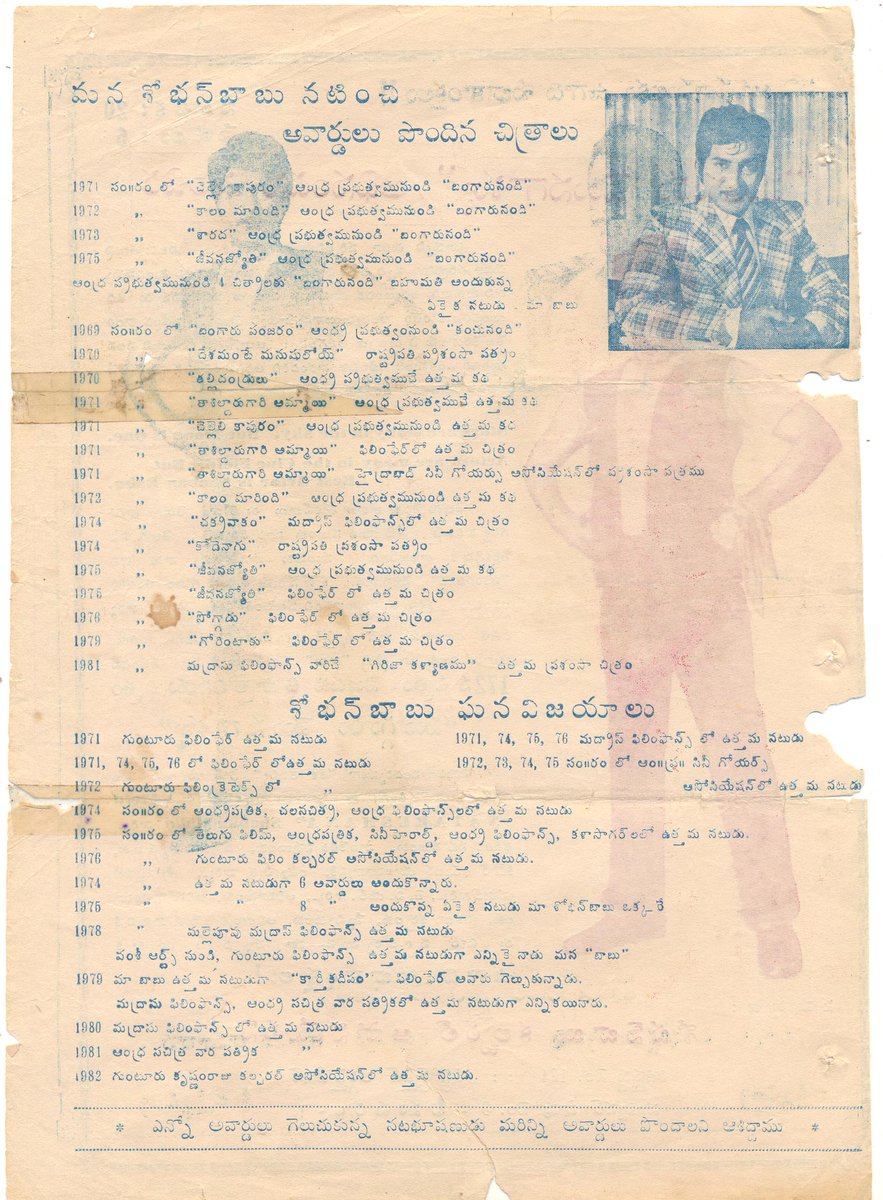 మన శోభన్‌బాబు నటించి
అవార్డులు పొందిన చిత్రాలు
1971 సం॥రం లో "చెల్లెలి కాపురం" ఆంధ్ర ప్రభుత్వమునుండి "బంగారునంది"
1972 ,, "కాలం మారింది" ఆంధ్ర ప్రభుత్వమునుండి "బంగారునంది"
1973 ,, "శారద" ఆంధ్ర ప్రభుత్వమునుండి "బంగారునంది"
1975 ,, "జీవనజ్యోతి" ఆంధ్ర ప్రభుత్వమునుండి "బంగారునంది"
ఆంధ్ర ప్రభుత్వమునుండి 4 చిత్రాలకు "బంగారునంది" బహుమతి అందుకున్న
ఏకైక నటుడు . మా బాబు
1969 సం॥రం లో "బంగారు పంజరం" ఆంధ్ర ప్రభుత్వంనుండి "కంచునంది"
1970 ,, "దేశమంటే మనుషులోయ్" రాష్ట్రపతి ప్రశంసా పత్రం
1970 ,, "తల్లిదండ్రులు" ఆంధ్ర ప్రభుత్వముచే ఉత్తమ కథ
1971 ,, "తాశిల్దారుగారి అమ్మాయి" ఆంధ్ర ప్రభుత్వముచే ఉత్తమ కథ
1971 ,, "చెల్లెలి కాపురం" ఆంధ్ర ప్రభుత్వమునుండి ఉత్తమ కథ
1971 ,, "తాశిల్దారుగారి అమ్మాయి" ఫిలింఫేర్‌లో ఉత్తమ చిత్రం
1971 ,, "తాశిల్దారుగారి అమ్మాయి" హైద్రాబాద్ సినీ గోయర్సు అసోసియేషన్‌లో ప్రశంసా పత్రము
1972 ,, "కాలం మారింది" ఆంధ్ర ప్రభుత్వమునుండి ఉత్తమ కథ
1974 ,, "చక్రవాకం" మద్రాస్ ఫిలింఫాన్స్‌లో ఉత్తమ చిత్రం
1974 ,, "కోడెనాగు" రాష్ట్రపతి ప్రశంసా పత్రం
1975 ,, "జీవనజ్యోతి" ఆంధ్ర ప్రభుత్వమునుండి ఉత్తమ కథ
1975 ,, "జీవనజ్యోతి" ఫిలింఫేర్ లో ఉత్తమ చిత్రం
1976 ,, "సోగ్గాడు" ఫిలింఫేర్ లో ఉత్తమ చిత్రం
1979 ,, "గోరింటాకు" ఫిలింఫేర్ లో ఉత్తమ చిత్రం
1981 ,, మద్రాసు ఫిలింఫాన్స్ వారిచే "గిరిజా కళ్యాణము" ఉత్తమ ప్రశంసా చిత్రం
శోభన్‌బాబు ఘనవిజయాలు
1971 గుంటూరు ఫిలింఫేర్ ఉత్తమ నటుడు 1971, 74, 75, 76 మద్రాస్ ఫిలింఫాన్స్ లో ఉత్తమ నటుడు
1971, 74, 75, 76 లో ఫిలింఫేర్ లోఉత్తమ నటుడు 1972, 73, 74, 75 సం॥రం లో ఆం॥ప్ర॥ సినీ గోయర్స్
1972 గుంటూరు ఫిలింక్రిటిక్స్ లో ,, అసోసియేషన్‌లో ఉత్తమ నటుడు
1974 సం॥రం లో ఆంధ్రపత్రిక, చలనచిత్ర, ఆంధ్ర ఫిలింఫాన్స్‌లలో ఉత్తమ నటుడు
1975 సం॥రం లో తెలుగు ఫిలిమ్, ఆంధ్రపత్రిక, సినీహెరాల్డ్, ఆంధ్ర ఫిలింఫాన్స్, కళాసాగర్‌లలో ఉత్తమ నటుడు.
1976 ,, గుంటూరు ఫిలిం కల్చరల్ అసోసియేషన్‌లో ఉత్తమ నటుడు.
1974 ,, ఉత్తమ నటుడుగా 6 అవార్డులు అందుకొన్నారు.
1975 " " 8 " అందుకొన్న ఏకైక నటుడు మా శోభన్‌బాబు ఒక్కరే
1978 " మల్లెపూవు మద్రాస్ ఫిలింఫాన్స్ ఉత్తమ నటుడు
వంశీ ఆర్ట్స్ నుండి, గుంటూరు ఫిలింఫాన్స్ ఉత్తమ నటుడుగా ఎన్నికైనాడు మన "బాబు"
1979 మా బాబు ఉత్తమ నటుడుగా "కార్తీకదీపం" ఫిలింఫేర్ అవారు గెల్చుకున్నాడు.
మద్రాసు ఫిలింఫాన్స్, ఆంధ్ర సచిత్ర వార పత్రికలో ఉత్తమ నటుడుగా ఎన్నికయినారు.
1980 మద్రాసు ఫిలింఫాన్స్ లో ఉత్తమ నటుడు
1981 ఆంధ్ర సచిత్ర వార పత్రిక "
1982 గుంటూరు కృష్ణంరాజు కల్చరల్ అసోసియేషన్‌లో ఉత్తమ నటుడు.
* ఎన్నో అవార్డులు గెలుచుకున్న నటభూషణుడు మరిన్ని అవార్డులు పొందాలని ఆశిద్దాము *